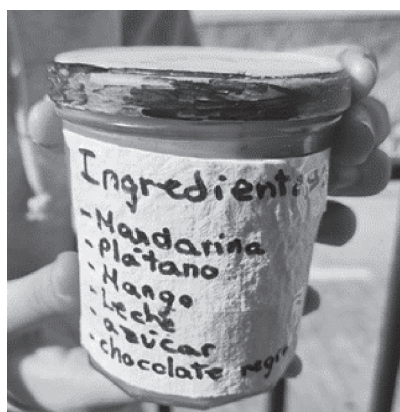 Ingredientes
- Mandarina
- Plátano
- Mango
- Leche
- azúcar
- chocolate negro